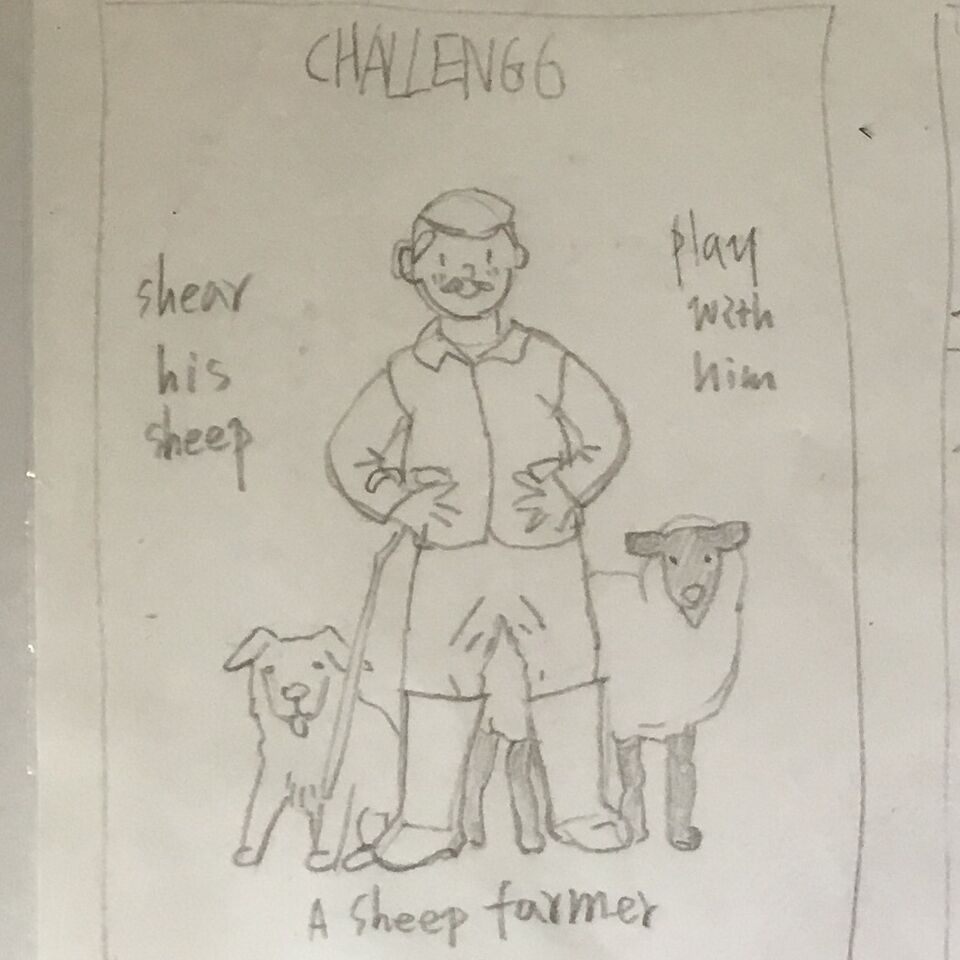 CHALLENG6
shear
his
sheep
play
with
him
A sheep farmer